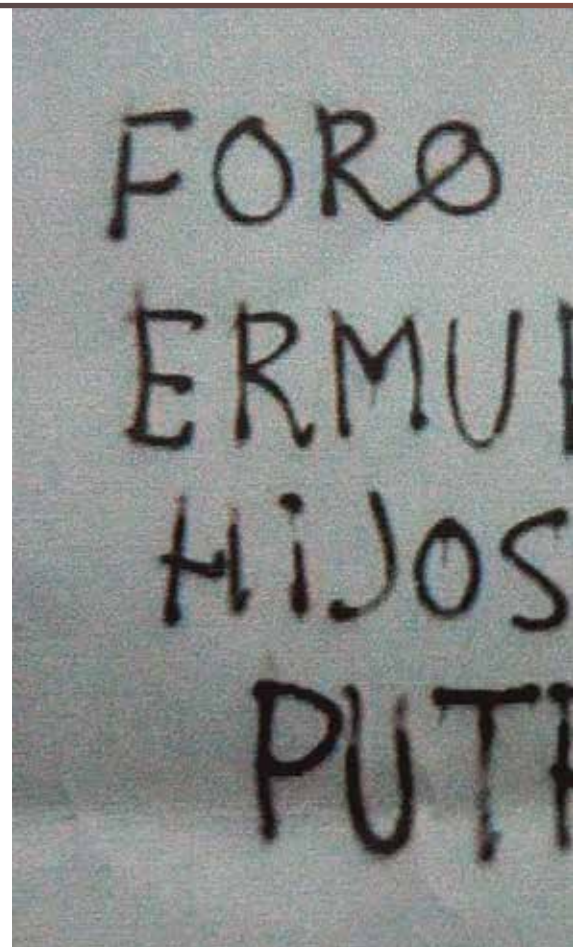 FORO
ERMU
HiJOS
PUT